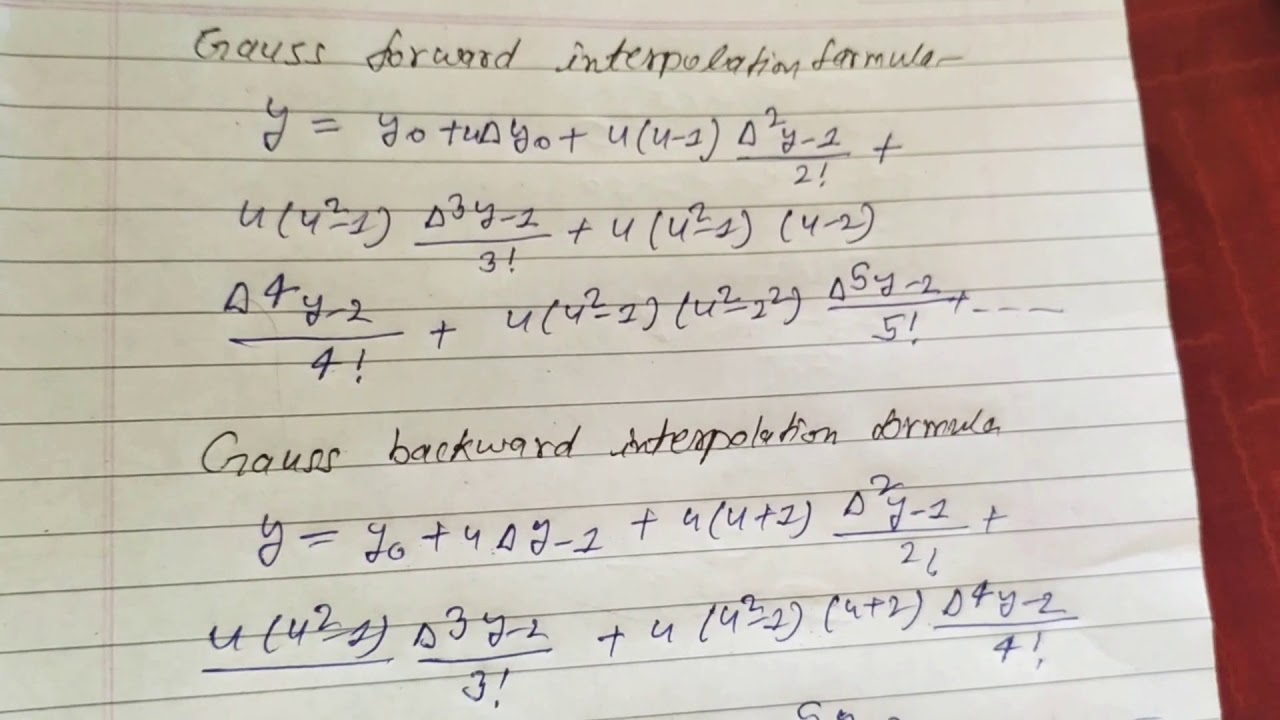 Gauss forward interpolation formula-
y = y₀ + uΔy₀ + u(u-1) Δ²y-1/2! +
u(u²-1) Δ³y-1/3! + u(u²-1) (u-2)
Δ⁴y-2/4! + u(u²-1) (u²-2²) Δ⁵y-2/5! + ----
Gauss backward interpolation formula
y = y₀ + uΔy-1 + u(u+1) Δ²y-1/2! +
u(u²-1) Δ³y-2/3! + u(u²-1) (u+2) Δ⁴y-2/4!